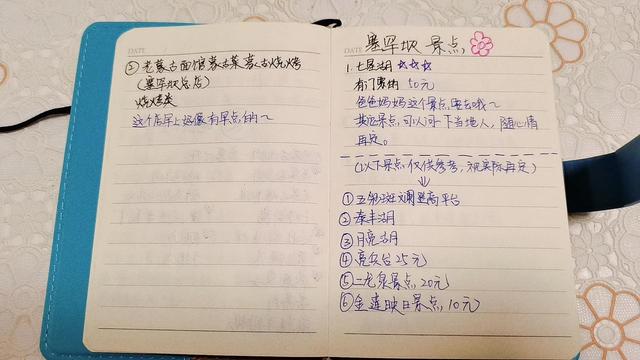 DATE
③ 老蒙古面馆蒙古菜蒙古烧烤
(塞罕坝总店)
烧烤类
这个店早上好像有早点的~
DATE
塞罕坝 景点
1. 七星湖 ☆☆☆
有门票的 50元
爸爸妈妈这个景点要去哦~
其它景点,可以问下当地人,随心情
再定。
(以下景点仅供参考,视实际再定)
↓
①五彩斑斓登高平台
②泰丰湖
③月亮湖
④亮兵台25元
⑤二龙泉景点,20元
⑥金莲映日景点,10元